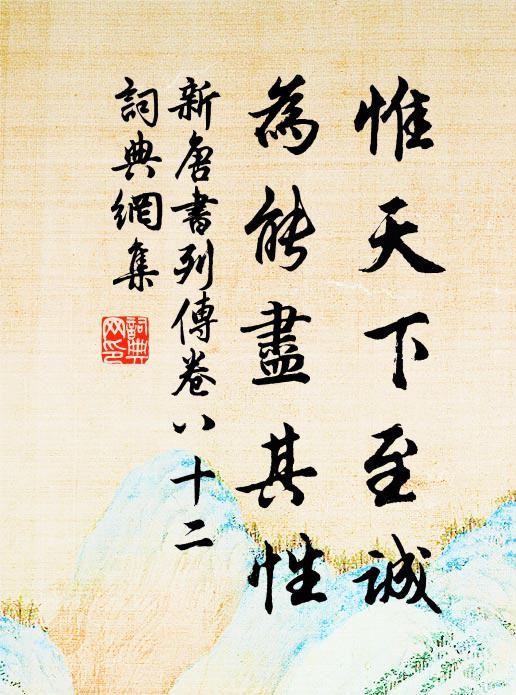 惟天下至誠
為能盡其性
新唐書列傳卷八十二
詞典網集
詞典網印